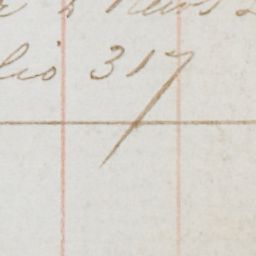 & News
lio 317